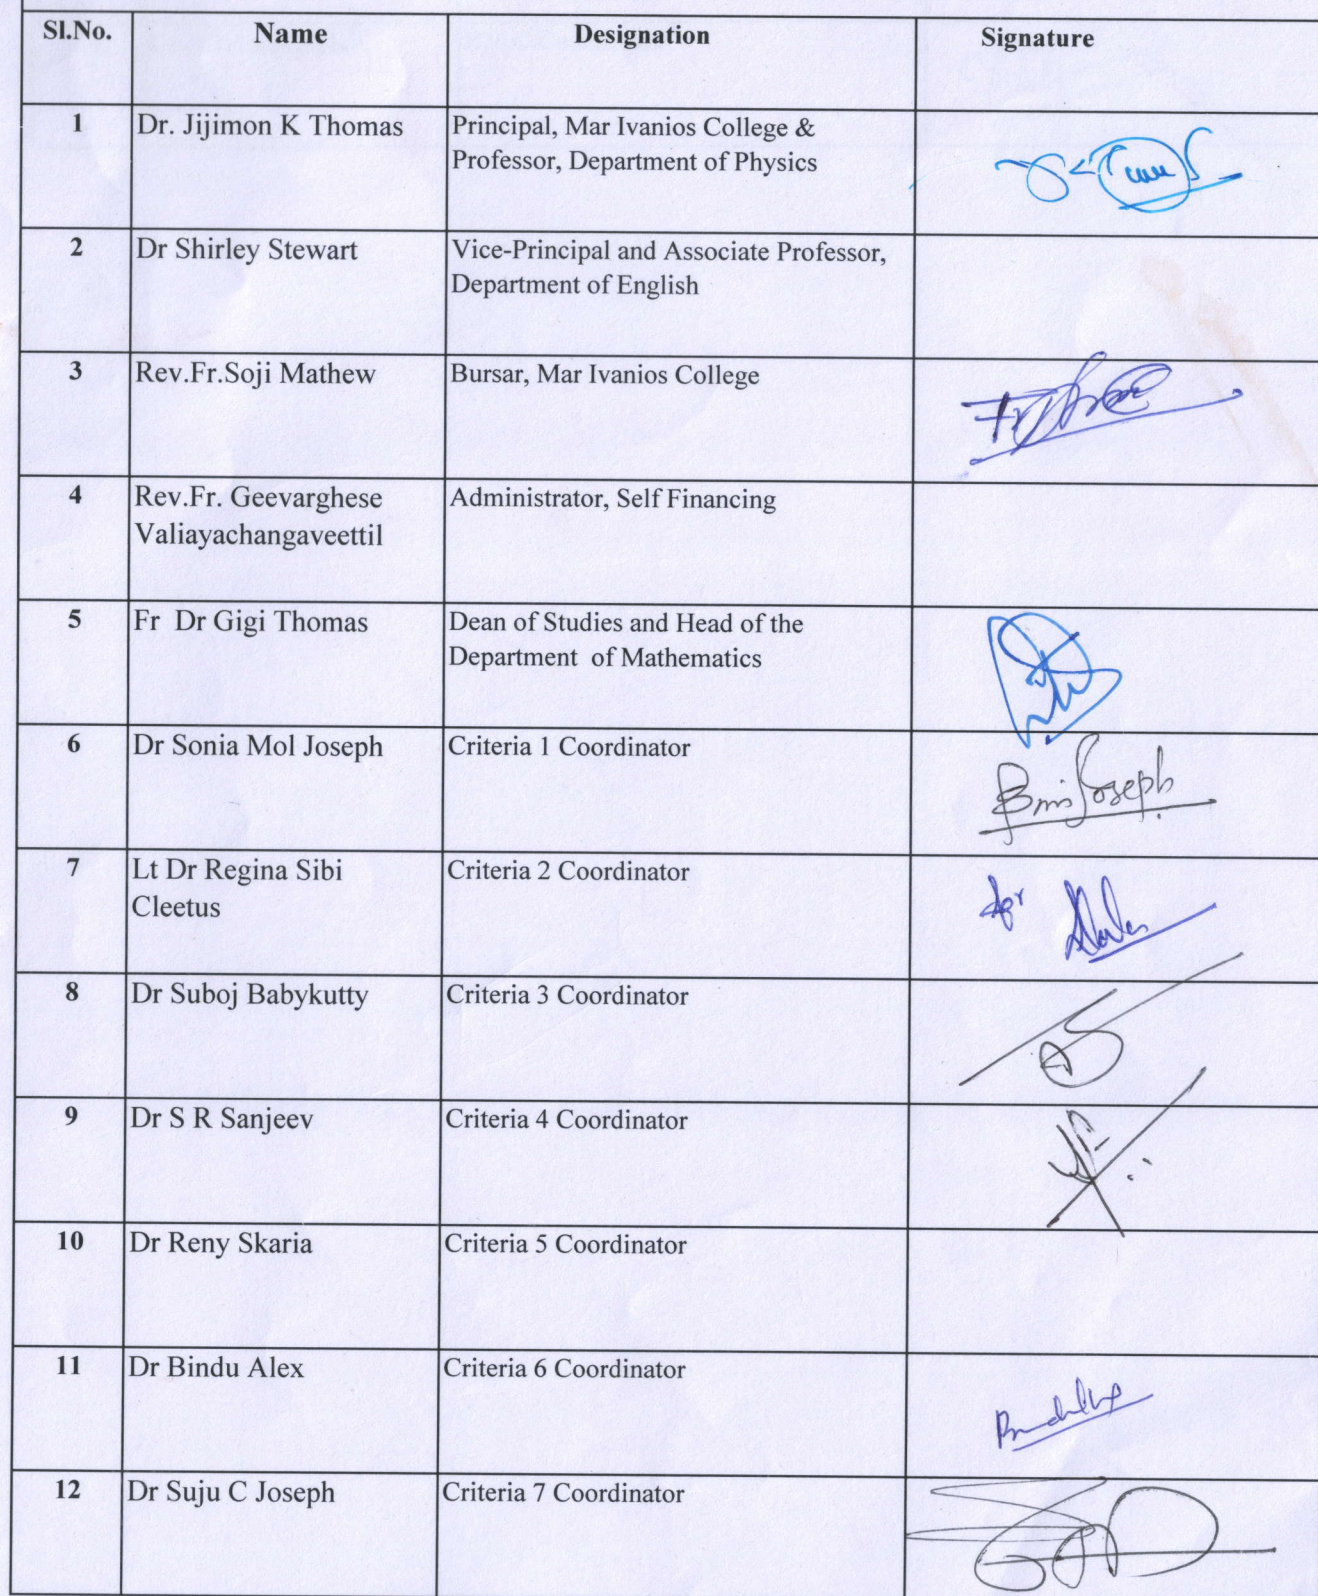 Sl.No. Name Designation Signature
1 Dr. Jijimon K Thomas Principal, Mar Ivanios College &
Professor, Department of Physics
2 Dr Shirley Stewart Vice-Principal and Associate Professor,
Department of English
3 Rev.Fr.Soji Mathew Bursar, Mar Ivanios College
4 Rev.Fr. Geevarghese Administrator, Self Financing
Valiayachangaveettil
5 Fr Dr Gigi Thomas Dean of Studies and Head of the
Department of Mathematics
6 Dr Sonia Mol Joseph Criteria 1 Coordinator
Joseph
7 Lt Dr Regina Sibi Criteria 2 Coordinator
Cleetus for
8 Dr Suboj Babykutty Criteria 3 Coordinator
9 Dr S R Sanjeev Criteria 4 Coordinator
10 Dr Reny Skaria Criteria 5 Coordinator
11 Dr Bindu Alex Criteria 6 Coordinator
12 Dr Suju C Joseph Criteria 7 Coordinator